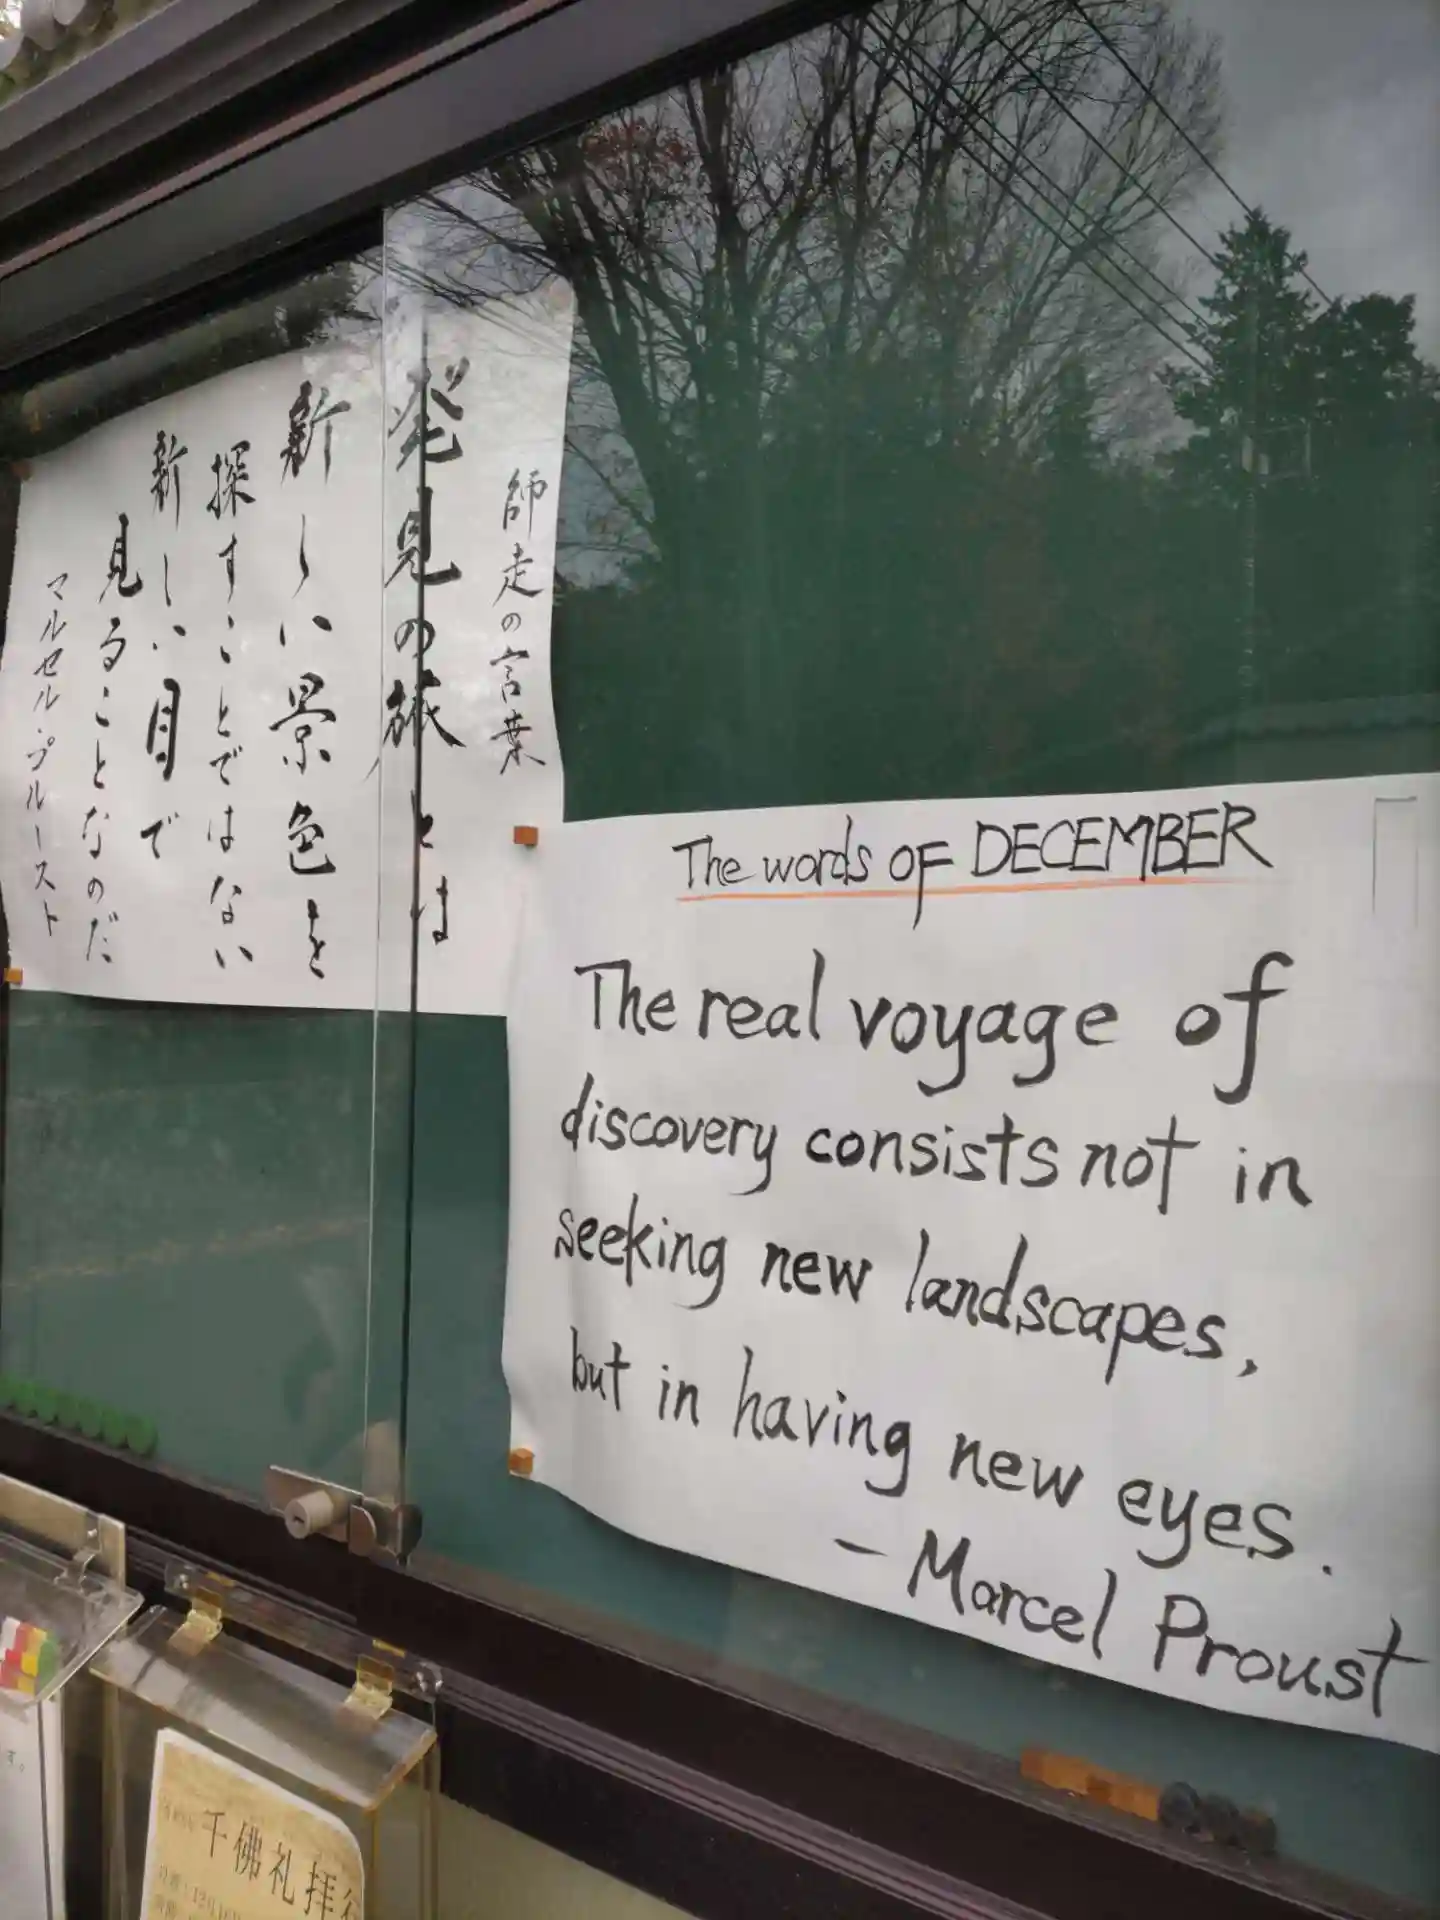 師走の言葉
発見の旅とは
新しい景色を
探すことではない
新しい目で
見ることなのだ
マルセル・プルースト
The words OF DECEMBER
The real voyage of
discovery consists not in
seeking new landscapes,
but in having new eyes.
— Marcel Proust
す。
千佛礼拝